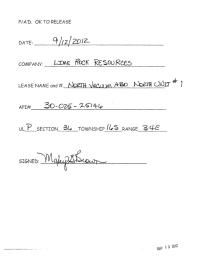 P/A'D. OK TO RELEASE
DATE: 9/12/2012
COMPANY: LIME ROCK RESOURCES
LEASE NAME and # NORTH VACUUM ABO NORTH UNIT #1
API# 30-025-25146
UL P SECTION 36 TOWNSHIP 16S RANGE 34E
SIGNED: Brown
SEP 13 2012